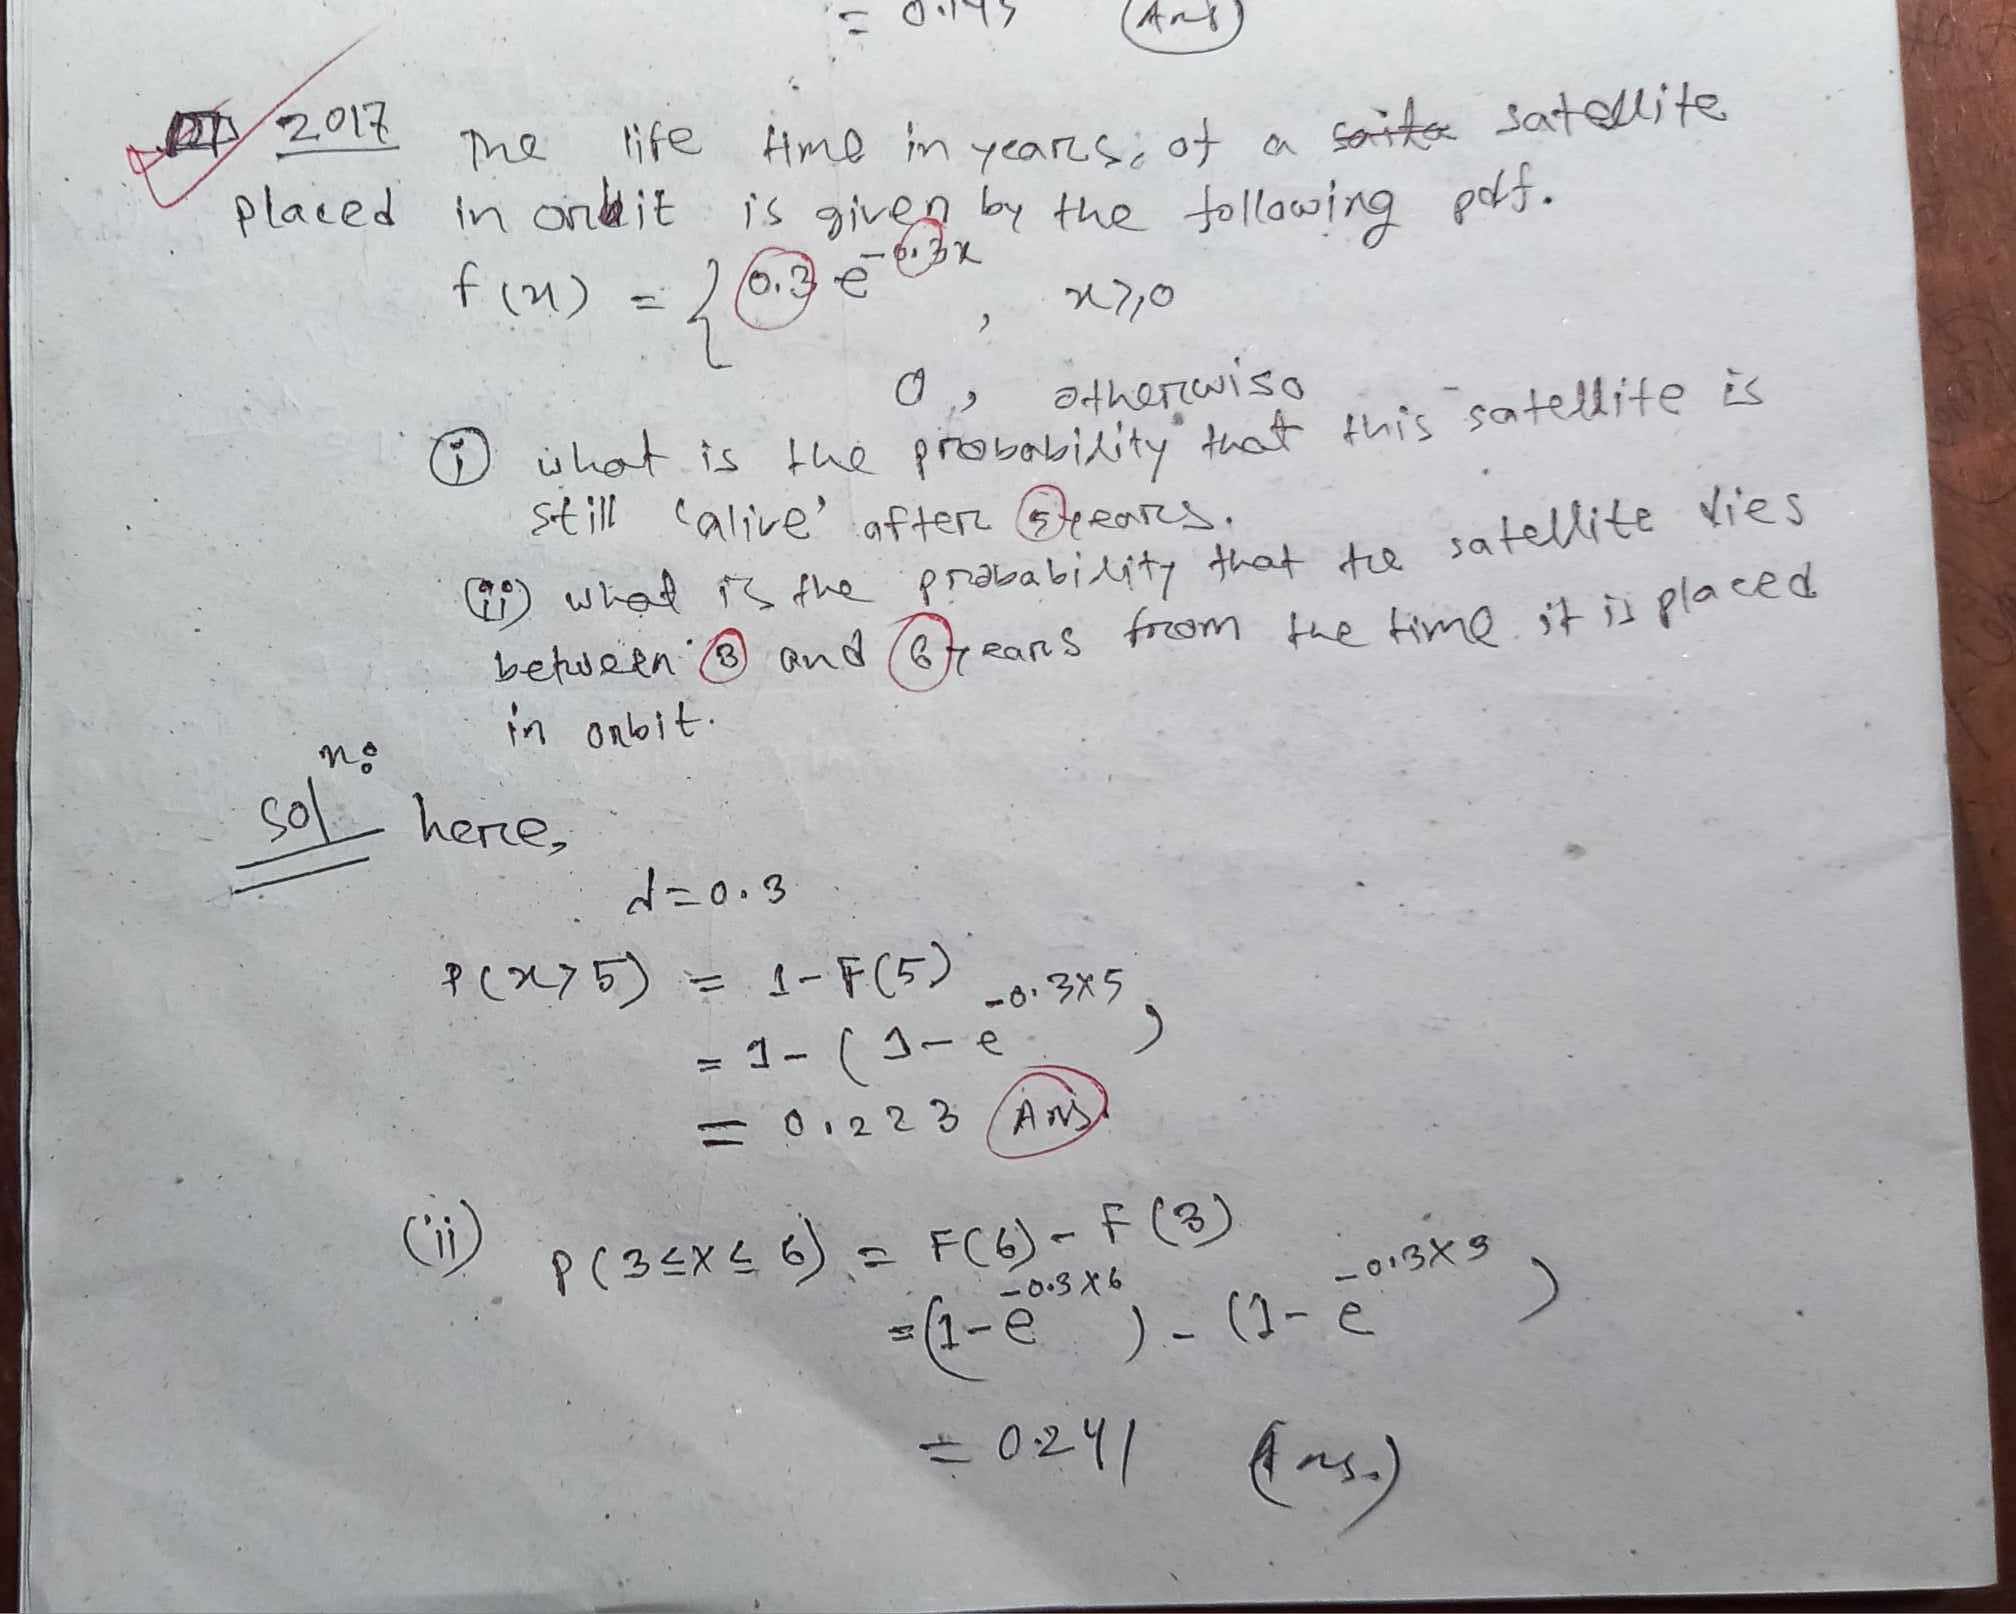 = 0.145 (Ans)
2017 The life time in years, of a saita satellite
placed in orbit is given by the following pdf.
f(x) = { 0.3 e^-0.3x , x≥0
0 , otherwise
(i) what is the probability that this satellite is
still 'alive' after 5 years.
(ii) what is the probability that the satellite dies
between 3 and 6 years from the time it is placed
in orbit.
Solⁿ: here,
d=0.3
P(x>5) = 1-F(5)
= 1-(1-e^-0.3×5)
= 0.223 (Ans)
(ii) P(3≤X≤6) = F(6)-F(3)
=(1-e^-0.3×6)-(1-e^-0.3×3)
= 0.241 (Ans.)